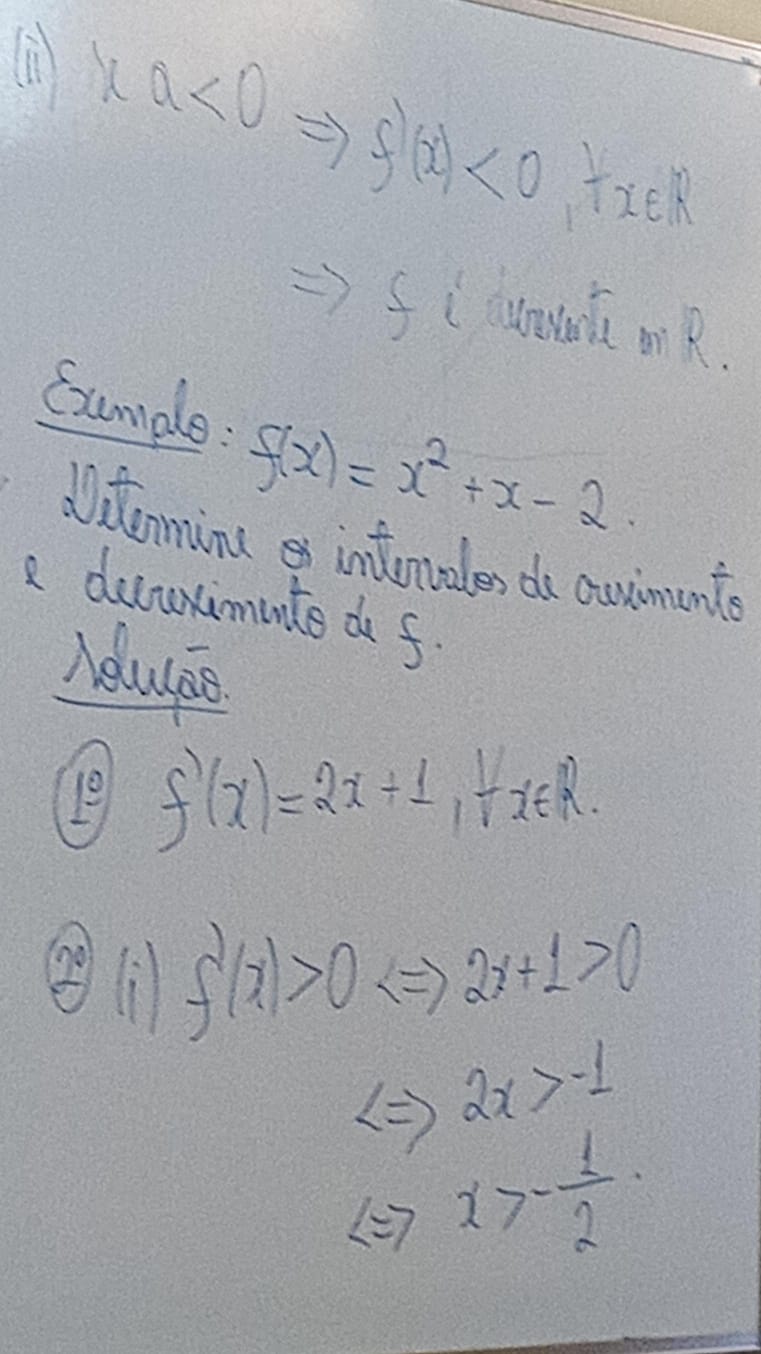 (ii) se a < 0 ⇒ f'(x) < 0, ∀x∈ℝ
⇒ f é decrescente em ℝ.
Exemplo: f(x) = x² + x - 2.
Determine os intervalos de crescimento
e decrescimento de f.
Solução.
1º f'(x) = 2x + 1, ∀x∈ℝ.
2º (i) f'(x) > 0 <=> 2x + 1 > 0
<=> 2x > -1
<=> x > -1/2.